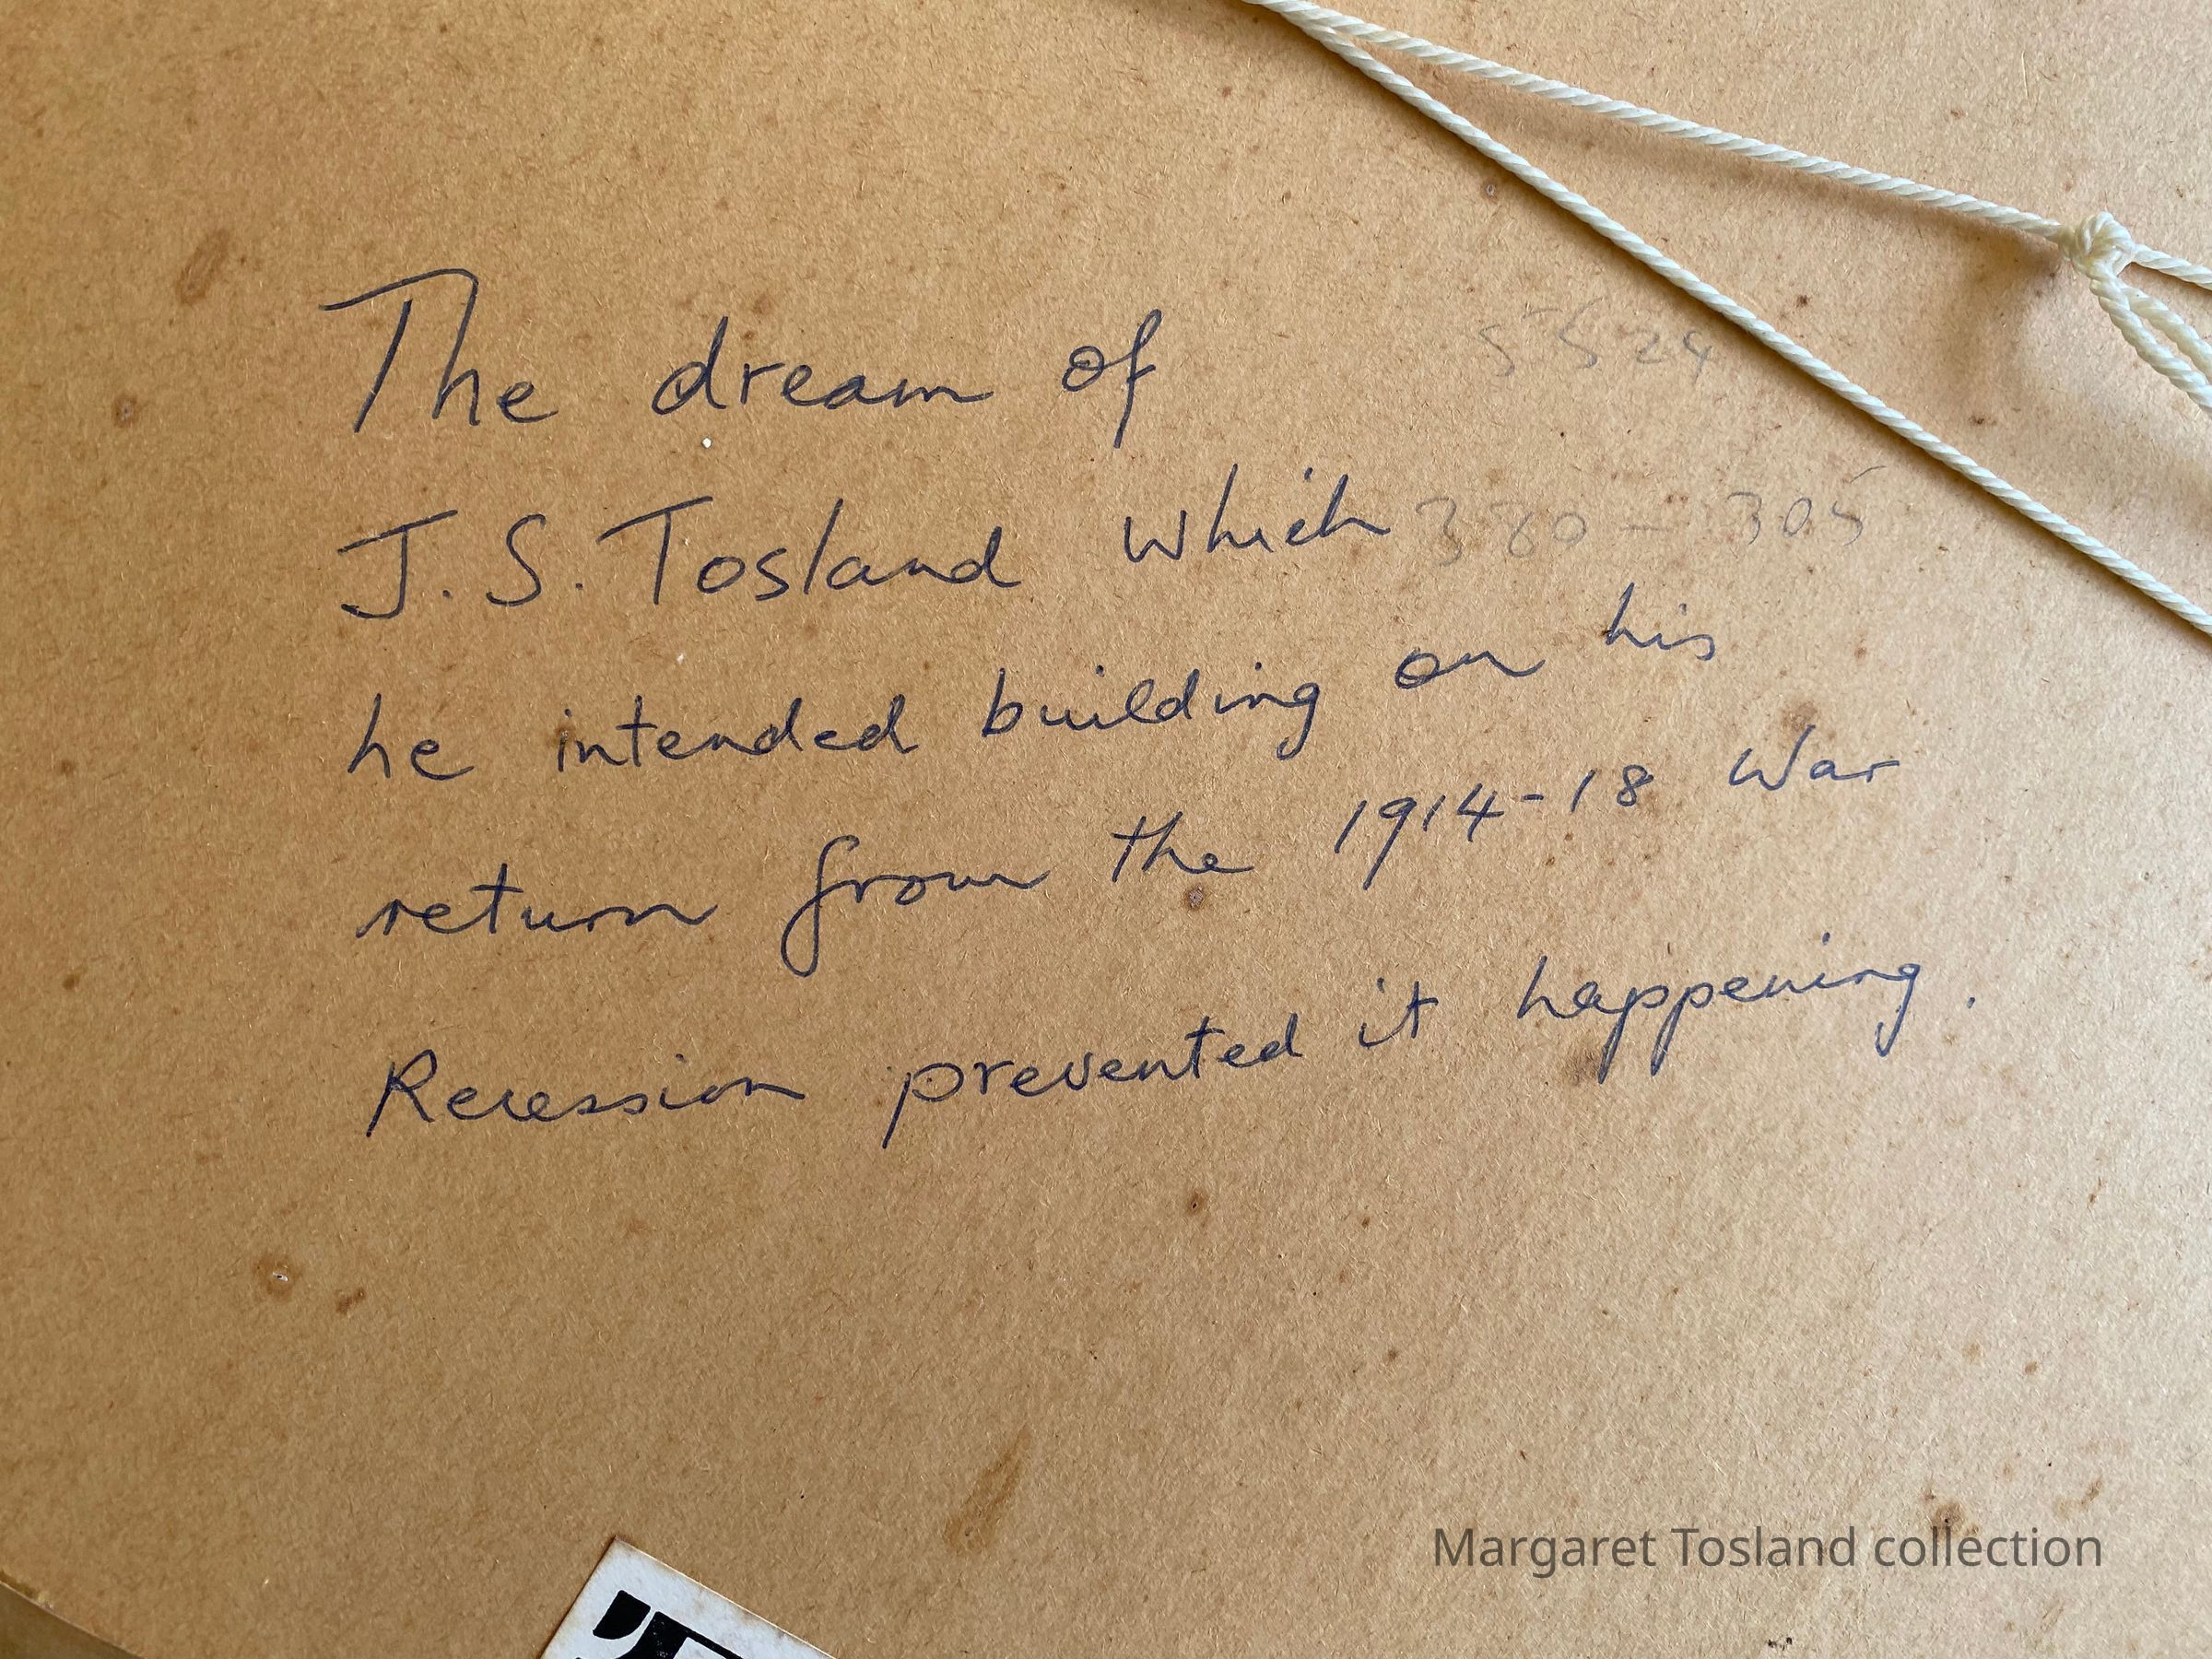 The dream of
5524
J. S. Tosland which
380 - 305
he intended building on his
return from the 1914-18 War
Recession prevented it happening.
Margaret Tosland collection